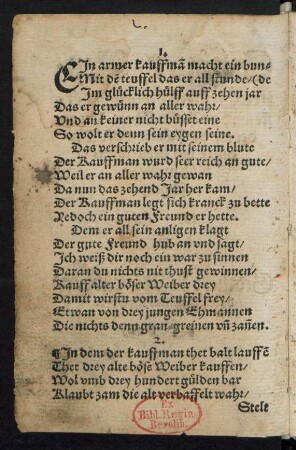 1.
EIn armer kauffmā macht ein bun-
Mit dē teuffel das er all stunde/ (de
Im glücklich hülff auff zehen jar
Das er gewünn an aller wahr/
Vnd an keiner nicht büsset eine
So wolt er denn sein eygen seine.
Das verschrieb er mit seinem blute
Der Kauffman wurd seer reich an gute/
Weil er an aller wahr gewan
Da nun das zehend Jar her kam/
Der Kauffman legt sich kranck zu bette
Jedoch ein guten Freund er hette.
Dem er all sein anligen klagt
Der gute Freund hub an vnd sagt/
Ich weiß dir noch ein war zu sinnen
Daran du nichts nit thust gewinnen/
Kauff alter böser Weiber drey
Damit wirstu vom Teuffel frey/
Etwan von drey jungen Ehmannen
Die nichts denn gran-greinen vñ zañen.
2.
In dem der kauffman thet balt lauffē
Thet drey alte böse Weiber kauffen/
Wol vmb drey hundert gülden bar
Klaubt zam die alt verbaffelt wahr/
Stelt
Ex
Bibl. Regia
Berolin.